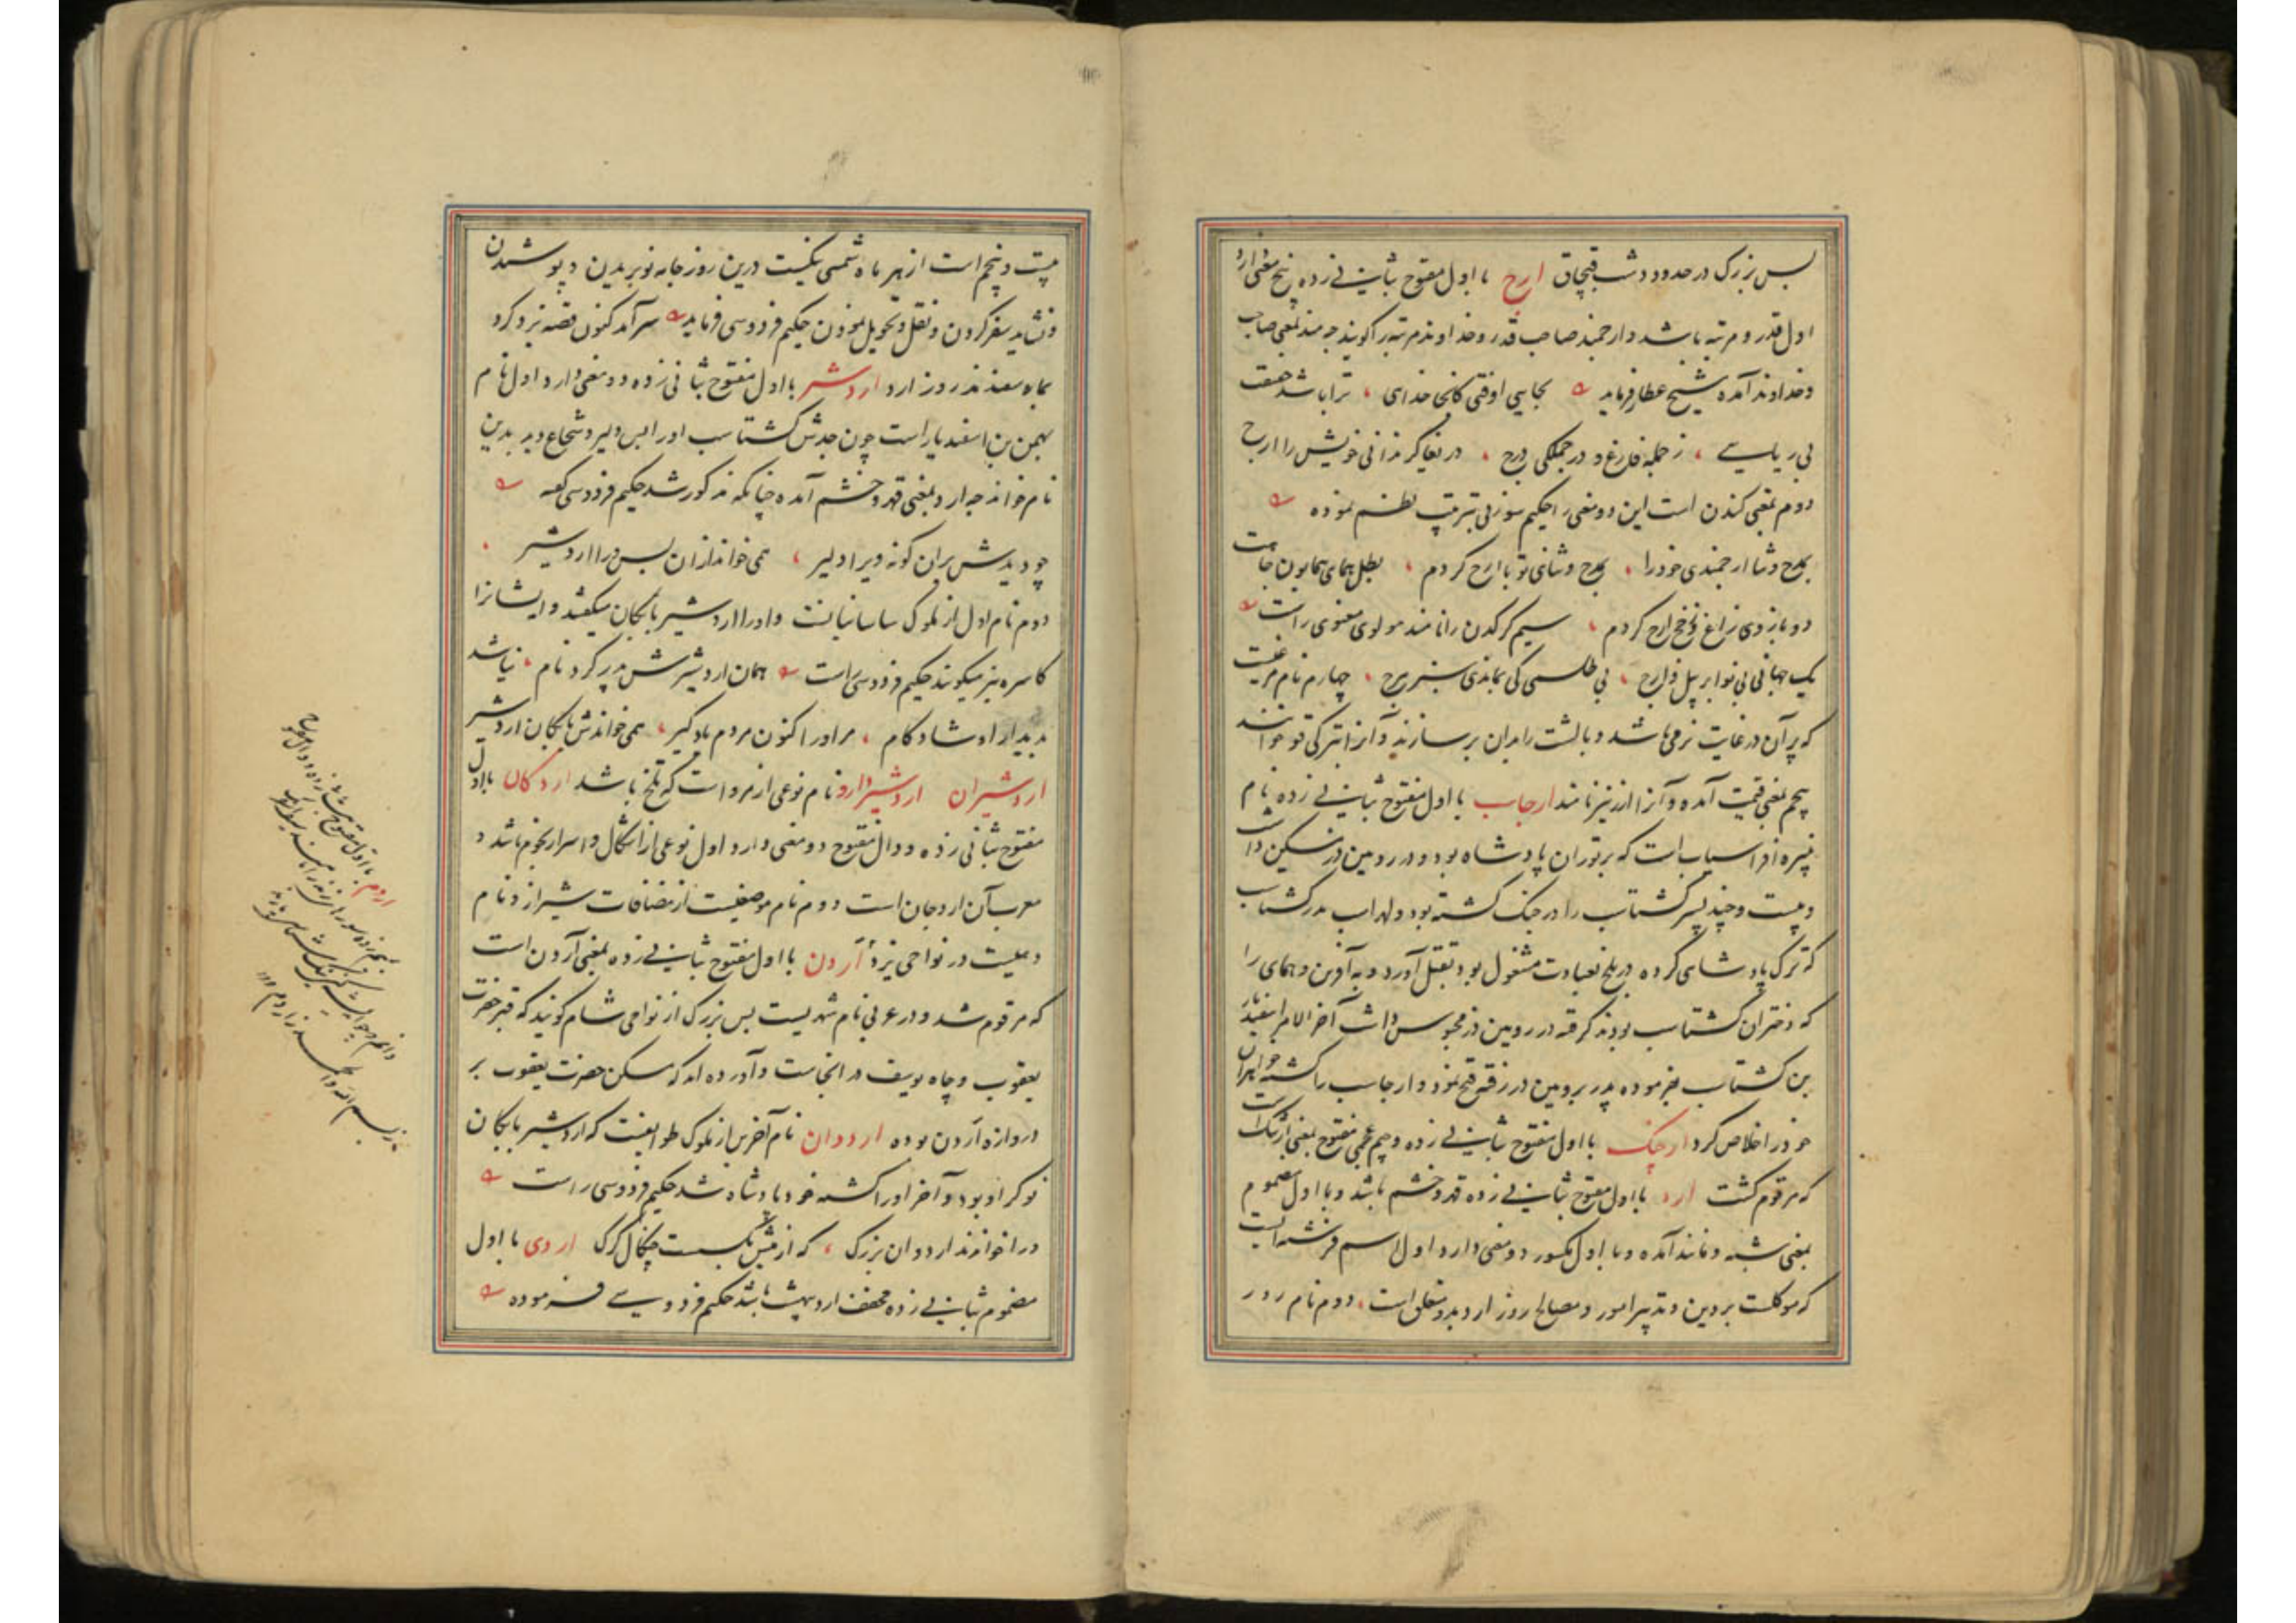 بس بزرک در حدود دشت قبچاق ارج با اول مفتوح بثانی زده پنج معنی دارد
اول قدر و مرتبه باشد و ارجمند صاحب قدر و خداوند مرتبه را کویند چه مند بمعنی صاحب
و خداوند آمده شیخ عطار فرماید بجایی اوفتی کانجا خدای ترا باشد حقیقت
بی ریایی ز جمله فارغ و در جملکی درج در نغایر ندانی خویش را ارج
دوم بمعنی کندن است این دو معنی را حکیم سوزنی بترتیب نظم نموده
بمدح و ثنا ارجمندی خود را بمدح و ثنای تو با ارج کردم بظل همای همایون جاهت
دو بازوی زاغ و فخ ارج کردم سیم کرکدن را نامند مولوی معنوی راست
یک جهانی بی نوا بر پیل و ارج بی طلسمی کی بماندی سبز مرج چهارم نام مرغیست
که پر آن در غایت نرمی باشد و بالشت را بدان پر سازند و آنرا بترکی قو خوانند
پنجم بمعنی قیمت آمده و آنرا ارز نیز نامند ارجاسپ با اول مفتوح بثانی زده نام
نبیره افراسیاب است که بر توران پادشاه بود و در رویین دز مسکن داشت
و بیست و چند پسر کشتاسب را در جنک کشته بود و لهراسب پدر کشتاسب
که ترک پادشاهی کرده در بلخ بعبادت مشغول بود بقتل آورد و به آفرین و همای را
که دختران کشتاسب بودند کرفته در رویین دز محبوس داشت آخر الامر اسفندیار
بن کشتاسب بفرموده پدر برویین دز رفته فتح نمود و ارجاسب را کشته خواهران
خود را خلاص کرد ارجنک با اول مفتوح بثانی زده و جیم عجمی مفتوح بمعنی ارژنک است
که مرقوم کشت ارد با اول مفتوح بثانی زده قهر و خشم باشد و با اول مضموم
بمعنی شبه و مانند آمده و با اول مکسور دو معنی دارد اول اسم فرشته ایست
که موکلست بر دین و تدبیر امور و مصالح روز ارد بدو متعلق است دوم نام روز
بیست و پنجم است از هر ماه شمسی نیکست درین روز جامه نو بریدن و پوشیدن
و نشاید سفر کردن و نقل و تحویل نمودن حکیم فردوسی فرماید سر آمد کنون قصه یزدکرد
بماه سفندارمذ روز ارد اردشیر با اول مفتوح بثانی زده دو معنی دارد اول نام
بهمن بن اسفندیار است چون جدش کشتاسب او را بس دلیر و شجاع دید بدین
نام خواند چه ارد بمعنی قهر و خشم آمده چنانکه مذکور شد حکیم فردوسی کفته
چو دیدش بران کونه ویرا دلیر همی خواندازان پس ورا اردشیر
دوم نام اول از ملوک ساسانیانست و او را اردشیر بابکان میکفتند و ایشانرا
کاسره نیز میکویند حکیم فردوسی راست همان اردشیرش پدر کرد نام نیا شد
بدیدار او شادکام مر اورا کنون مردم یادکیر همی خواندش بابکان اردشیر
اردشیران اردشیردارو نام نوعی از مرو است که تلخ باشد اردکان با اول
مفتوح بثانی زده و دال مفتوح دو معنی دارد اول نوعی از اشکال و اسرار نجوم باشد و
معرب آن اردجان است دوم نام موضعیست از مضافات شیراز و نام
دهیست در نواحی یزد اردن با اول مفتوح بثانی زده بمعنی آردن است
که مرقوم شد و در عربی نام شهریست بس بزرک از نواحی شام کویند که قبر حضرت
یعقوب و چاه یوسف در انجاست و آورده اند که مسکن حضرت یعقوب بر
دروازه اردن بوده اردوان نام آخرین از ملوک طوایفست که اردشیر بابکان
نوکر او بود و آخر او را کشته خود پادشاه شد حکیم فردوسی راست
ورا خواندند اردوان بزرک که از میش بکسست چنکال کرک اردی با اول
مضموم بثانی زده مخفف اردیبهشت باشد حکیم فردوسی فرموده
اردم با اول مفتوح بثانی زده و دال مفتوح